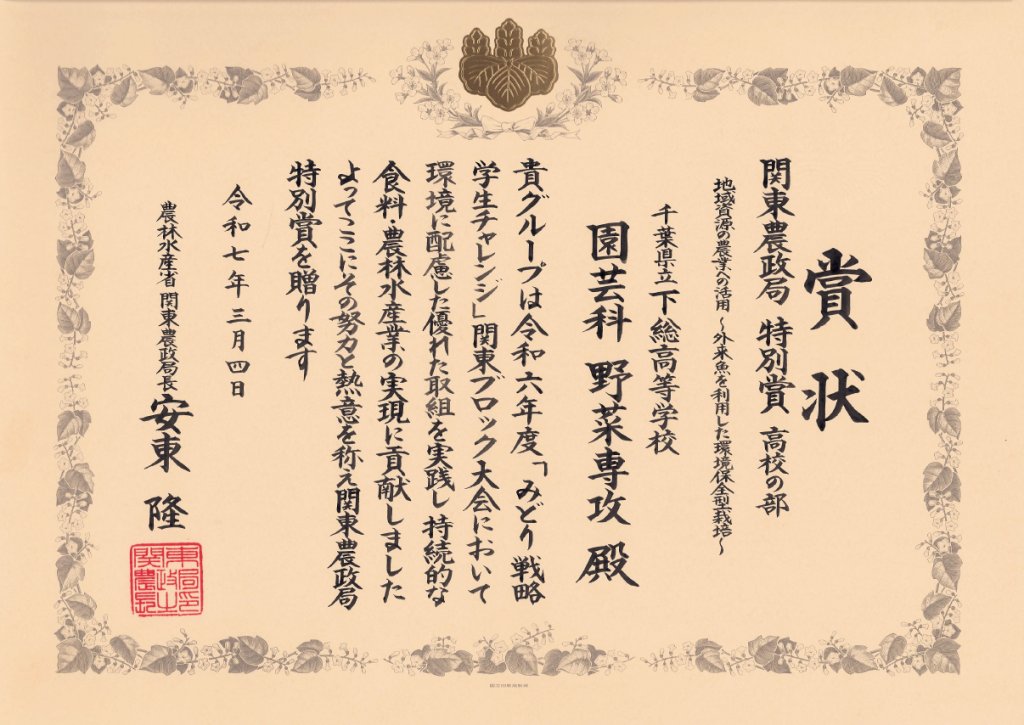 賞状
関東農政局 特別賞 高校の部
地域資源の農業への活用 ～外来魚を利用した環境保全型栽培～
千葉県立下総高等学校
園芸科 野菜専攻 殿
貴グループは令和六年度「みどり戦略
学生チャレンジ」関東ブロック大会において
環境に配慮した優れた取組を実践し 持続的な
食料・農林水産業の実現に貢献しました
よってここにその努力と熱意を称え関東農政局
特別賞を贈ります
令和七年三月四日
農林水産省 関東農政局長 安東 隆